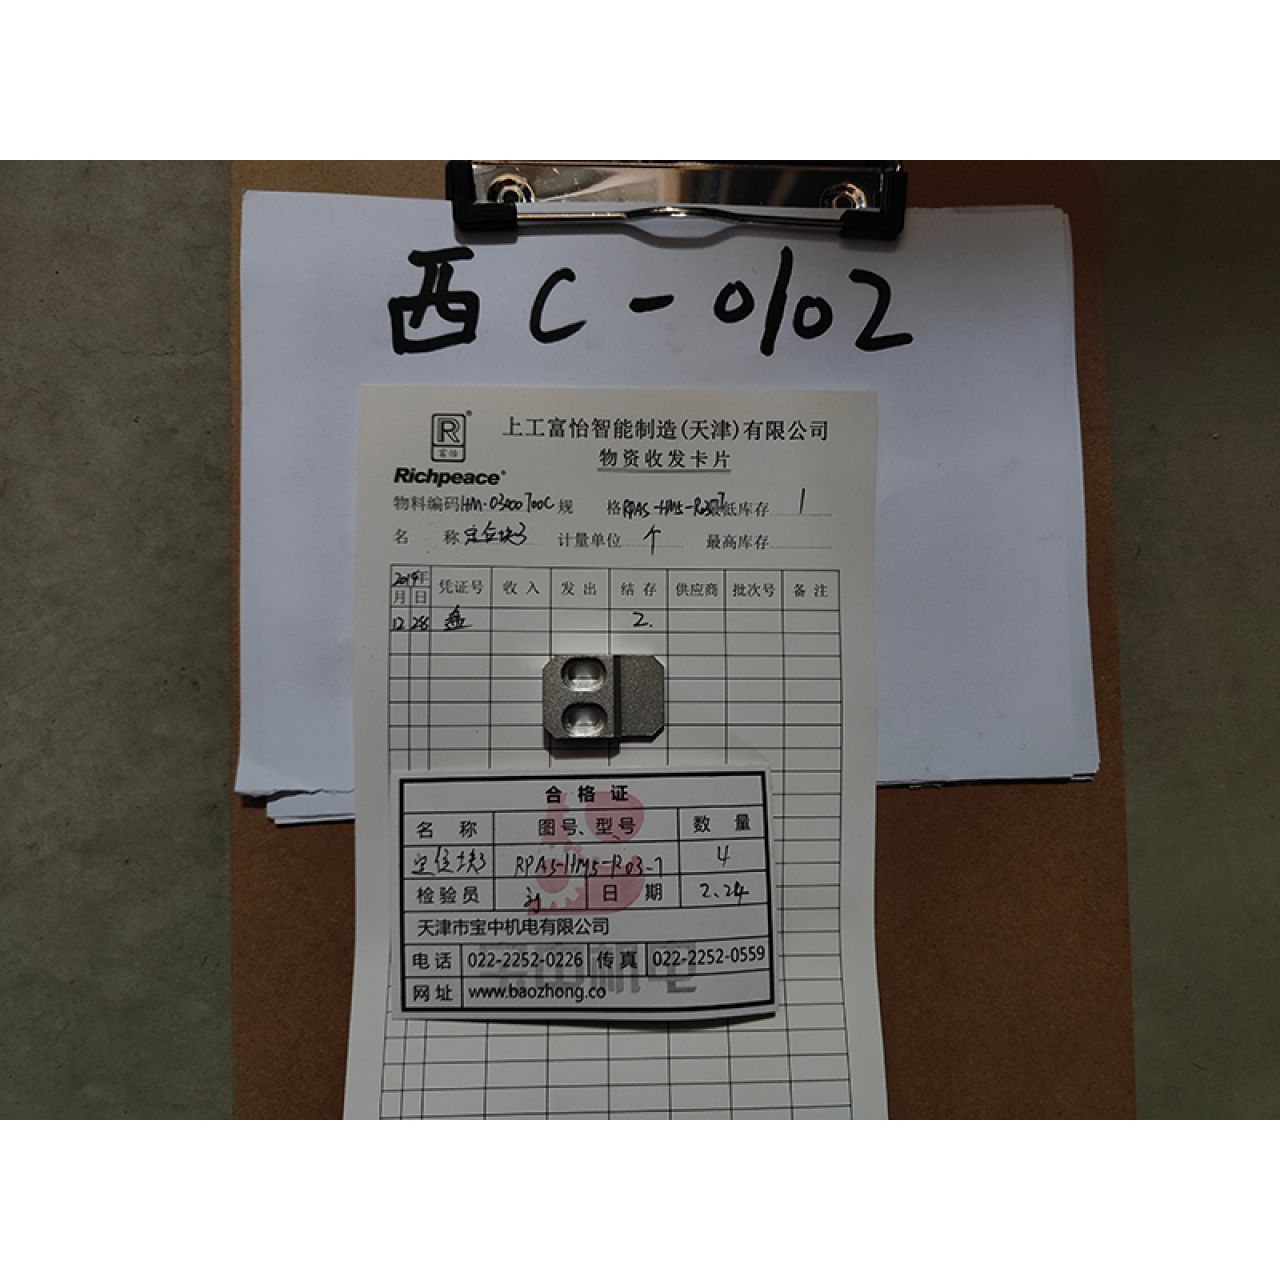 西C-0102
R®
富怡
Richpeace®
上工富怡智能制造(天津)有限公司
物资收发卡片
物料编码 HM-03400700C 规 格 RPAS-HM5-R03-7 最低库存 1
名 称 定位块3 计量单位 个 最高库存
2019年 凭证号 收入 发出 结存 供应商 批次号 备注
月 日
12 28 盘 2.
合格证
名 称 图号、型号 数 量
定位块3 RPAS-HM5-R03-7 4
检验员 日 期 2.24
天津市宝中机电有限公司
电话 022-2252-0226 传真 022-2252-0559
网址 www.baozhong.co